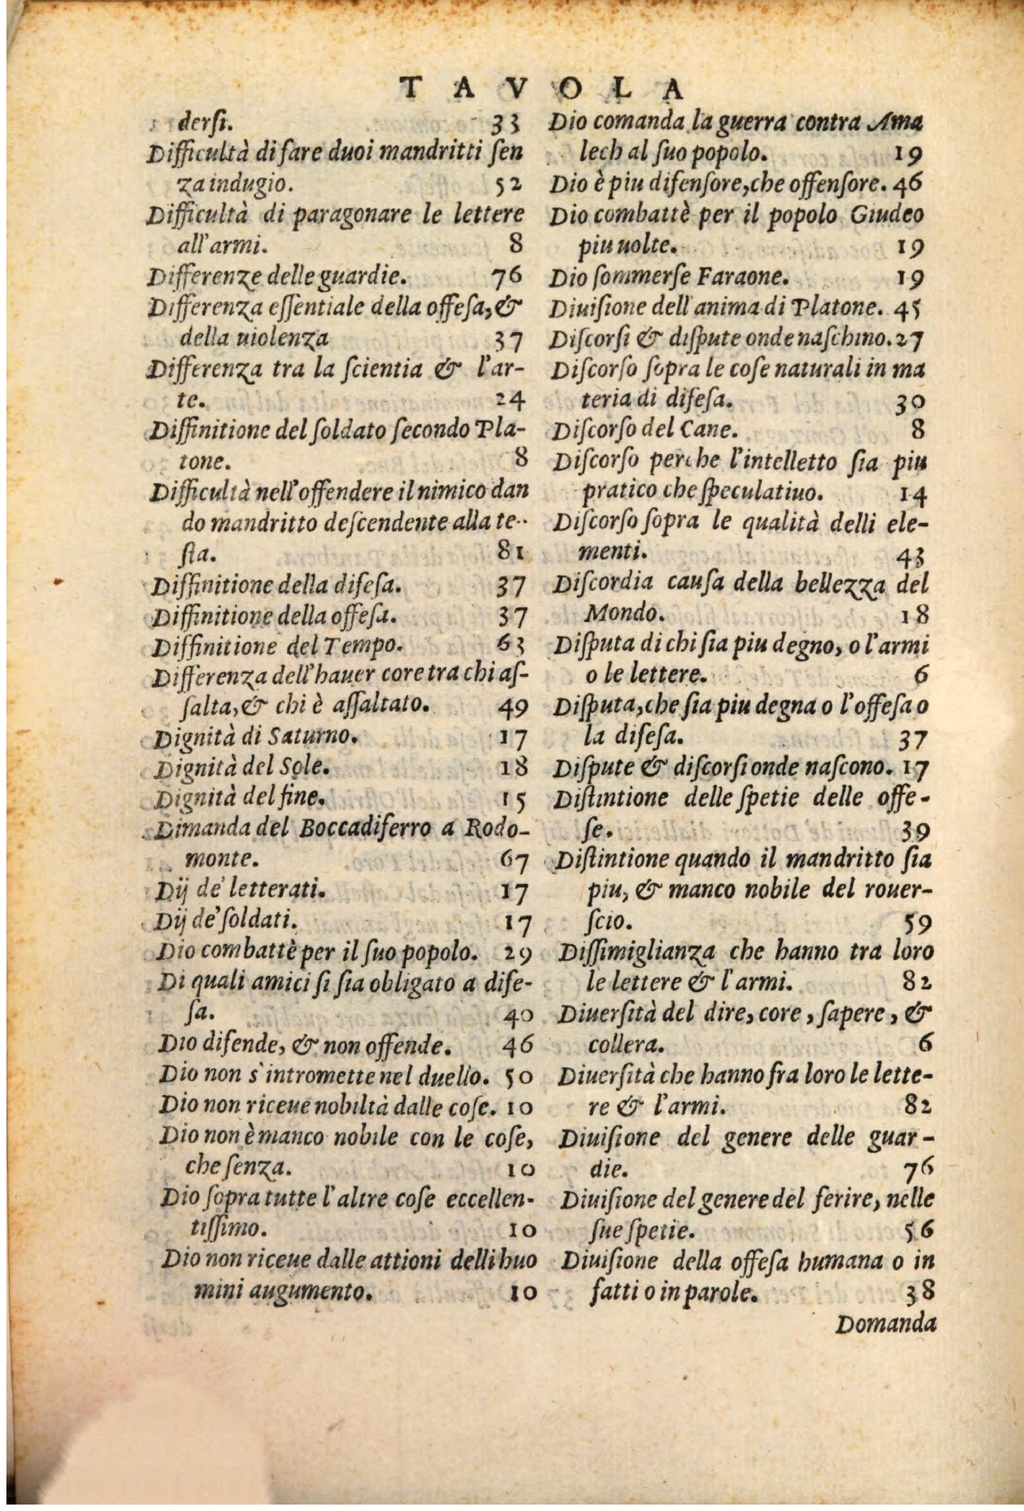 TAVOLA
derſi. 33
Difficultà di fare duoi mandritti ſen
za indugio. 52
Difficultà di paragonare le lettere
all'armi. 8
Differenze delle guardie. 76
Differenza eſſentiale della offeſa, &
della uiolenza 37
Differenza tra la ſcientia & l'ar-
te. 24
Diffinitione del ſoldato ſecondo Pla-
tone. 8
Difficultà nell'offendere il nimico dan
do mandritto deſcendente alla te-
ſta. 81
Diffinitione della difeſa. 37
Diffinitione della offeſa. 37
Diffinitione del Tempo. 63
Differenza dell'hauer core tra chi aſ-
ſalta, & chi è aſſaltato. 49
Dignità di Saturno. 17
Dignità del Sole. 18
Dignità del fine. 15
Dimanda del Boccadiferro a Rodo-
monte. 67
Dij de' letterati. 17
Dij de' ſoldati. 17
Dio combattè per il ſuo popolo. 29
Di quali amici ſi ſia obligato a dife-
ſa. 40
Dio difende, & non offende. 46
Dio non s'intromette nel duello. 50
Dio non riceue nobiltà dalle coſe. 10
Dio non è manco nobile con le coſe,
che ſenza. 10
Dio ſopra tutte l'altre coſe eccellen-
tiſſimo. 10
Dio non riceue dalle attioni delli huo
mini augumento. 10
Dio comanda la guerra contra Ama
lech al ſuo popolo. 19
Dio è piu difenſore, che offenſore. 46
Dio combattè per il popolo Giudeo
piu uolte. 19
Dio ſommerſe Faraone. 19
Diuiſione dell'anima di Platone. 45
Diſcorſi & diſpute onde naſchino. 27
Diſcorſo ſopra le coſe naturali in ma
teria di difeſa. 30
Diſcorſo del Cane. 8
Diſcorſo perche l'intelletto ſia piu
pratico che ſpeculatiuo. 14
Diſcorſo ſopra le qualità delli ele-
menti. 43
Diſcordia cauſa della bellezza del
Mondo. 18
Diſputa di chi ſia piu degno, o l'armi
o le lettere. 6
Diſputa, che ſia piu degna o l'offeſa o
la difeſa. 37
Diſpute & diſcorſi onde naſcono. 17
Diſtintione delle ſpetie delle offe-
ſe. 39
Diſtintione quando il mandritto ſia
piu, & manco nobile del rouer-
ſcio. 59
Diſſimiglianza che hanno tra loro
le lettere & l'armi. 82
Diuerſità del dire, core, ſapere, &
collera. 6
Diuerſità che hanno fra loro le lette-
re & l'armi. 82
Diuiſione del genere delle guar-
die. 76
Diuiſione del genere del ferire, nelle
ſue ſpetie. 56
Diuiſione della offeſa humana o in
fatti o in parole. 38
Domanda